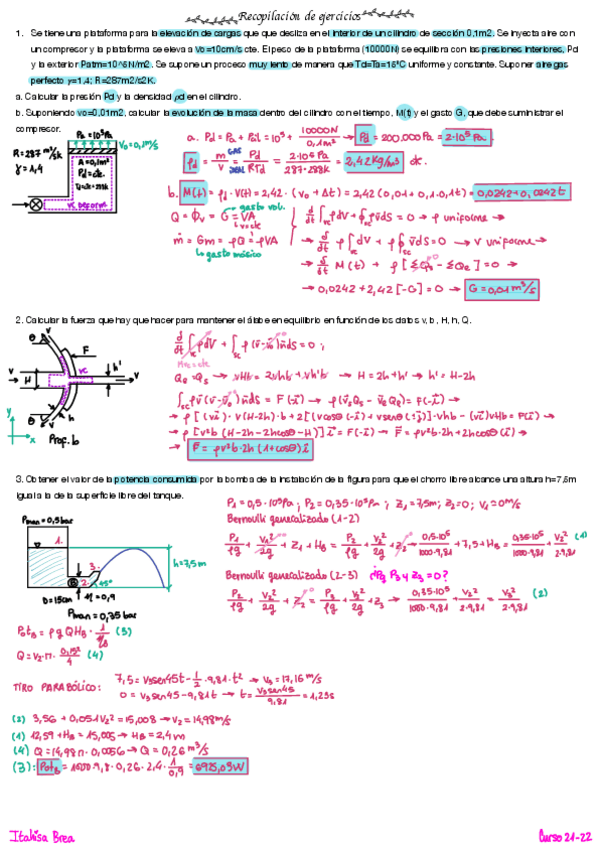 Recopilación de ejercicios
1. Se tiene una plataforma para la elevación de cargas que que desliza en el interior de un cilindro de sección 0,1m2. Se inyecta aire con
un compresor y la plataforma se eleva a Vo=10cm/s cte. El peso de la plataforma (10000N) se equilibra con las presiones interiores, Pd
y la exterior Patm=10^5N/m2. Se supone un proceso muy lento de manera que Td=Ta=15ºC uniforme y constante. Suponer aire gas
perfecto γ=1,4; R=287m2/s2K.
a. Calcular la presión Pd y la densidad ρd en el cilindro.
b. Suponiendo vo=0,01m2, calcular la evolución de la masa dentro del cilindro con el tiempo, M(t) y el gasto G, que debe suministrar el
compresor.
Pa = 10⁵Pa
V₀=0,1m/s
R=287 m²/s²k
γ=1,4
A=0,1m²
Pd=cte.
a. Pd = Pa + Pcil = 10⁵ + 10000N / 0,1m² → Pd = 200.000 Pa = 2·10⁵ Pa
ρd = m/V = Pd/RTd = 2·10⁵Pa / 287·288K = 2,42 Kg/m³ cte.
b. M(t) = ρd · V(t) = 2,42 · (V₀ + Δt) = 2,42 (0,01 + 0,1·0,1t) = 0,0242 + 0,0242t
gasto vol.
Q = Φv = G = VA
ṁ = Gm = ρQ = ρVA
gasto másico
d/dt ∫ρdV + ∮ρv̄ds = 0 → ρ uniforme →
→ d/dt ρ∫dV + ρ∮v̄ds = 0 → v uniforme →
→ d/dt M(t) + ρ[ΣQs - ΣQe] = 0 →
→ 0,0242 + 2,42[-G] = 0 → G = 0,01 m³/s
2. Calcular la fuerza que hay que hacer para mantener el álabe en equilibrio en función de los datos v, b, H, h, Q.
θ v F h' v H v vc θ v h
y x Prof. b
Qe = Qs → vHb = 2vhb + vh'b → H = 2h + h' → h' = H-2h
→ ρ[v²b(H-2h-2hcosθ-H)]ī = F(-ī) → F̄ = ρv²b·2h + 2hcosθ(ī) →
→ F̄ = ρv²b·2h(1+cosθ)ī
3. Obtener el valor de la potencia consumida por la bomba de la instalación de la figura para que el chorro libre alcance una altura h=7,5m
igual a la de la superficie libre del tanque.
Pman = 0,5bar
1.
2.
3.
B
45°
h=7,5m
D=15cm η=0,9
Pman=0,35 bar
P₁ = 0,5·10⁵Pa; P₂ = 0,35·10⁵Pa; Z₁ = 7,5m; Z₂=0; V₁=0m/s
Bernoulli generalizado (1-2)
P₁/ρg + V₁²/2g + Z₁ + HB = P₂/ρg + V₂²/2g + Z₂ → 0,5·10⁵/1000·9,81 + 7,5 + HB = 0,35·10⁵/1000·9,81 + V₂²/2·9,81 (1)
Bernoulli generalizado (2-3) ¿P₃ y Z₃ = 0?
P₂/ρg + V₂²/2g + Z₂ = P₃/ρg + V₃²/2g + Z₃ → 0,35·10⁵/1000·9,81 + V₂²/2·9,81 = V₃²/2·9,81 (2)
PotB = ρgQHB · 1/ηB (3)
Q = V₂·π · 0,15²/4 (4)
TIRO PARABÓLICO: 7,5 = V₃sen45t - 1/2 · 9,81·t² → V₃ = 17,16 m/s
0 = V₃sen45 - 9,81t → t = V₃sen45/9,81 = 1,23s
(2) 3,56 + 0,051V₂² = 15,008 → V₂ = 14,98m/s
(1) 12,59 + HB = 15,005 → HB = 2,4m
(4) Q = 14,98π · 0,0056 → Q = 0,26 m³/s
(3): PotB = 1000·9,8·0,26·2,4·1/0,9 = 6975,03W
Itahisa Brea
Curso 21-22